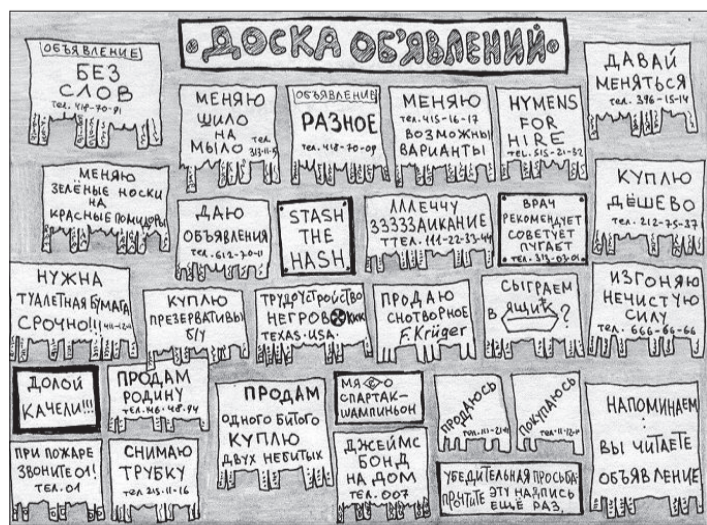 ДОСКА ОБ'ЯВЛЕНИЙ
ОБЪЯВЛЕНИЕ
БЕЗ
СЛОВ
тел. 418-70-91
МЕНЯЮ
ШИЛО
НА
МЫЛО
тел
313-11-5
ОБЪЯВЛЕНИЕ
РАЗНОЕ
тел. 418-70-09
МЕНЯЮ
тел. 415-16-17
ВОЗМОЖНЫ
ВАРИАНТЫ
HYMENS
FOR
HIRE
TEL. 515-21-32
ДАВАЙ
МЕНЯТЬСЯ
тел. 396-15-14
МЕНЯЮ
ЗЕЛЁНЫЕ НОСКИ
НА
КРАСНЫЕ ПОМИДОРЫ
ДАЮ
ОБЪЯВЛЕНИЯ
тел. 612-70-11
STASH
THE
HASH
ЛЛЛЕЧЧУ
ЗЗЗЗЗАИКАНИЕ
ТТЕЛ. 111-22-33-44
ВРАЧ
РЕКОМЕНДУЕТ
СОВЕТУЕТ
ПУГАЕТ
ТЕЛ. 313-03-01
КУПЛЮ
ДЁШЕВО
тел. 212-75-37
НУЖНА
ТУАЛЕТНАЯ БУМАГА
СРОЧНО!!!
КУПЛЮ
ПРЕЗЕРВАТИВЫ
Б/У
ТРУДУСТРОЙСТВО
НЕГРОВ KKK
TEXAS·USA·
ПРОДАЮ
СНОТВОРНОЕ
F. Krüger
СЫГРАЕМ
В ЯЩИК?
ИЗГОНЯЮ
НЕЧИСТУЮ
СИЛУ
ТЕЛ. 666-66-66
ДОЛОЙ
КАЧЕЛИ!!!
ПРОДАМ
РОДИНУ
ТЕЛ. 146-48-94
ПРОДАМ
ОДНОГО БИТОГО
КУПЛЮ
ДВУХ НЕБИТЫХ
СПАРТАК-
ШАМПИНЬОН
ПРОДАЮСЬ
ПОКУПАЮСЬ
НАПОМИНАЕМ
:
ВЫ ЧИТАЕТЕ
ОБЪЯВЛЕНИЕ
ПРИ ПОЖАРЕ
ЗВОНИТЕ 01!
ТЕЛ. 01
СНИМАЮ
ТРУБКУ
тел 215-11-16
ДЖЕЙМС
БОНД
НА ДОМ
ТЕЛ. 007
УБЕДИТЕЛЬНАЯ ПРОСЬБА:
ПРОЧТИТЕ ЭТУ НАДПИСЬ
ЕЩЁ РАЗ.